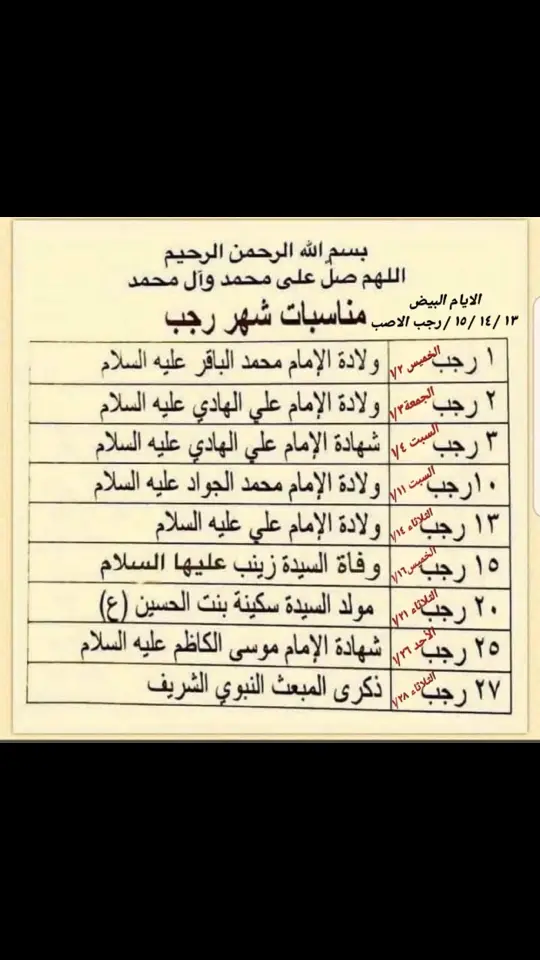 بسم الله الرحمن الرحيم
اللهم صل على محمد وآل محمد
الايام البيض
١٣ / ١٤ / ١٥ / رجب الاصب
مناسبات شهر رجب
١ رجب الخميس ١/٢ ولادة الإمام محمد الباقر عليه السلام
٢ رجب الجمعة ١/٣ ولادة الإمام علي الهادي عليه السلام
٣ رجب السبت ١/٤ شهادة الإمام علي الهادي عليه السلام
١٠ رجب السبت ١/١١ ولادة الإمام محمد الجواد عليه السلام
١٣ رجب الثلاثاء ١/١٤ ولادة الإمام علي عليه السلام
١٥ رجب الخميس ١/١٦ وفاة السيدة زينب عليها السلام
٢٠ رجب الثلاثاء ١/٢١ مولد السيدة سكينة بنت الحسين (ع)
٢٥ رجب الأحد ١/٢٦ شهادة الإمام موسى الكاظم عليه السلام
٢٧ رجب الثلاثاء ١/٢٨ ذكرى المبعث النبوي الشريف